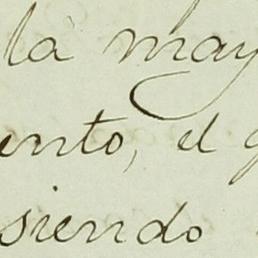 là may
ento, el q
siendo